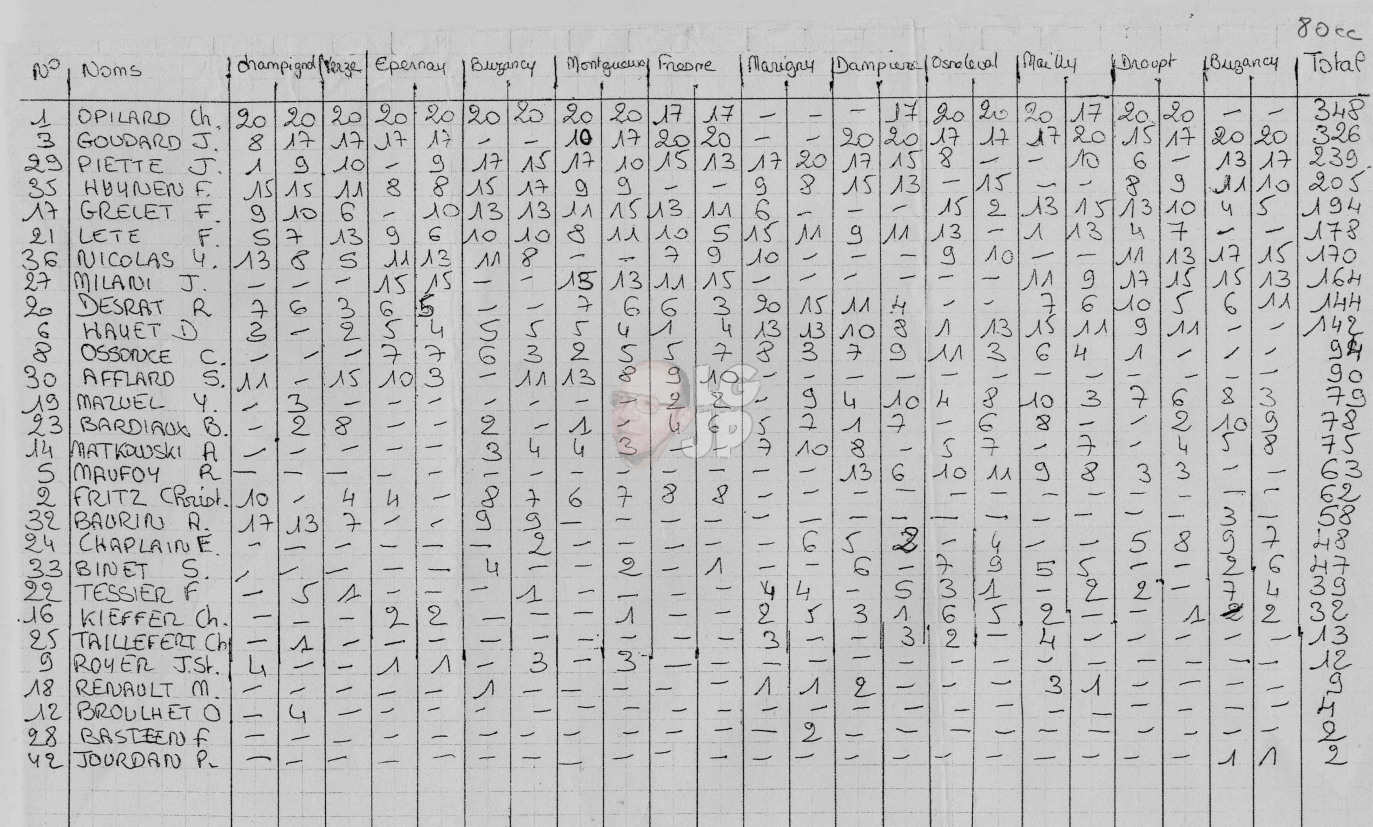 80cc
N° Noms Champignol Verze Epernay Buzancy Montgueux Fresne Marigny Dampierre Osneleval Mailly Droupt Buzancy Total
1 OPILARD Ch. 20 20 20 20 20 20 20 20 20 17 17 – – – 17 20 20 20 17 20 20 – – 348
3 GOUDARD J. 8 17 17 17 17 – – 10 17 20 20 – – 20 20 17 17 17 20 15 17 20 20 326
29 PIETTE J. 1 9 10 – 9 17 15 17 10 15 13 17 20 17 15 8 – – 10 6 – 13 17 239
35 HUYNEN F. 15 15 11 8 8 15 17 9 9 – – 9 8 15 13 – 15 – – 8 9 11 10 205
17 GRELET F. 9 10 6 – 10 13 13 11 15 13 11 6 – – – 15 2 13 15 13 10 4 5 194
21 LETE F. 5 7 13 9 6 10 10 8 11 10 5 15 11 9 11 13 – 1 13 4 7 – – 178
36 NICOLAS Y. 13 8 5 11 13 11 8 – – 7 9 10 – – – 9 10 – – 11 13 17 15 170
27 MILANI J. – – – 15 15 – – 15 13 11 15 – – – – – – 11 9 17 15 15 13 164
20 DESRAT R 7 6 3 6 5 – – 7 6 6 3 20 15 11 4 – – 7 6 10 5 6 11 144
6 HAYET D 3 – 2 5 4 5 5 5 4 1 4 13 13 10 8 1 13 15 11 9 11 – – 142
8 OSSONCE C. – – – 7 7 6 3 2 5 5 7 8 3 7 9 11 3 6 4 1 – – – 94
30 AFFLARD S. 11 – 15 10 3 – 11 13 8 9 10 – – – – – – – – – – – – 90
19 MAZUEL Y. – 3 – – – – – – – 2 2 – 9 4 10 4 8 10 3 7 6 8 3 79
23 BARDIAUX B. – 2 8 – – 2 – 1 – 4 6 5 7 1 7 – 6 8 – – 2 10 9 78
14 MATKOWSKI A – – – – – 3 4 4 3 – – 7 10 8 – 5 7 – 7 – 4 5 8 75
5 MAUFOY R – – – – – – – – – – – – – 13 6 10 11 9 8 3 3 – – 63
2 FRITZ Christ. 10 – 4 4 – 8 7 6 7 8 8 – – – – – – – – – – – – 62
32 BAURIN A. 17 13 7 – – 9 9 – – – – – – – – – – – – – – 3 – 58
24 CHAPLAIN E. – – – – – – 2 – – – – – 6 5 2 – 4 – – 5 8 9 7 48
33 BINET S. – – – – – 4 – – 2 – 1 – – 6 – 7 9 5 5 – – 2 6 47
22 TESSIER F – 5 1 – – – 1 – – – – 4 4 – 5 3 1 – 2 2 – 7 4 39
16 KIEFFER Ch. – – – 2 2 – – – 1 – – 2 5 3 1 6 5 2 – – 1 2 2 32
25 TAILLEFERT Ch – 1 – – – – – – – – – 3 – – 3 2 – 4 – – – – – 13
9 ROYER J.St. 4 – – 1 1 – 3 – 3 – – – – – – – – – – – – – – 12
18 RENAULT M. – – – – – 1 – – – – – 1 1 2 – – – 3 1 – – – – 9
12 BROULHET O – 4 – – – – – – – – – – – – – – – – – – – – – 4
28 BASTEEN F – – – – – – – – – – – – 2 – – – – – – – – – – 2
42 JOURDAN P. – – – – – – – – – – – – – – – – – – – – – 1 1 2